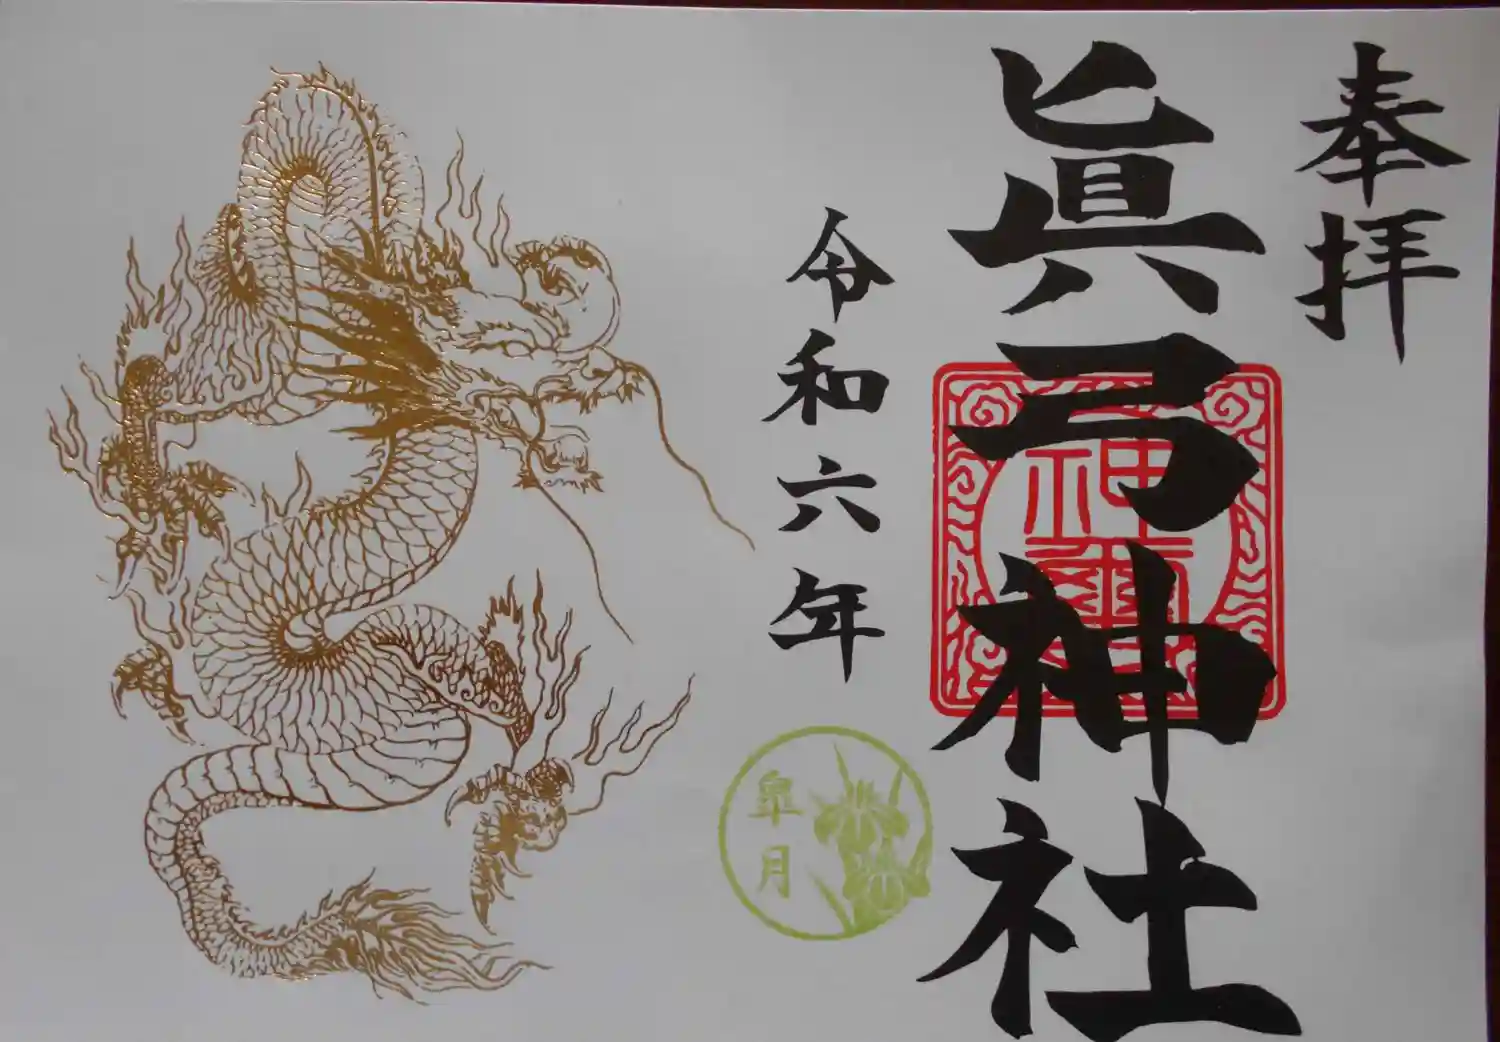 奉拝
眞弓神社
令和六年
皐月